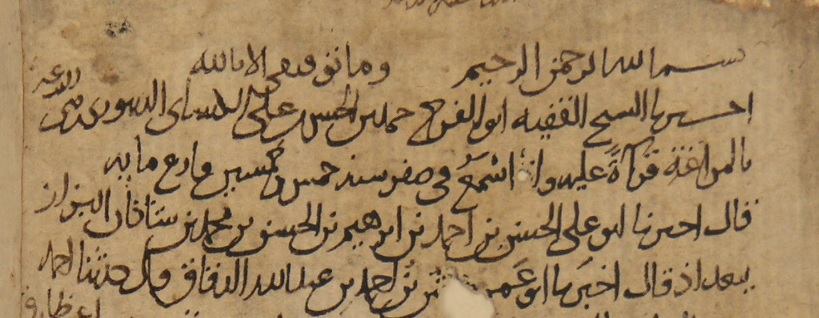 بسم الله الرحمن الرحيم وما توفيقي الا بالله
اخبرنا الشيخ الفقيه ابو الفرج حمد بن الحسن بن علي
بالمراغة قرآة عليه وانا اسمع في صفر سنة خمس وخمسين واربع مايه
قال اخبرنا ابو علي الحسن بن احمد بن ابرهيم بن الحسن بن محمد بن شاذان البزاز
ببغداد قال اخبرنا ابو عمرو بن احمد بن عبد الله الدقاق قال حدثنا احمد